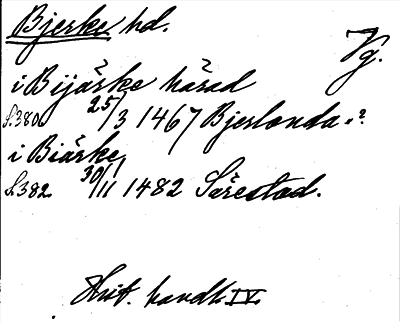 Bjerke hd.
Vg.
i Bijärke härad
S.380 25/3 1467 Bjerlanda.?
i Biärke
S.382 30/11 1482 Särestad.
Hist. handl. IV.